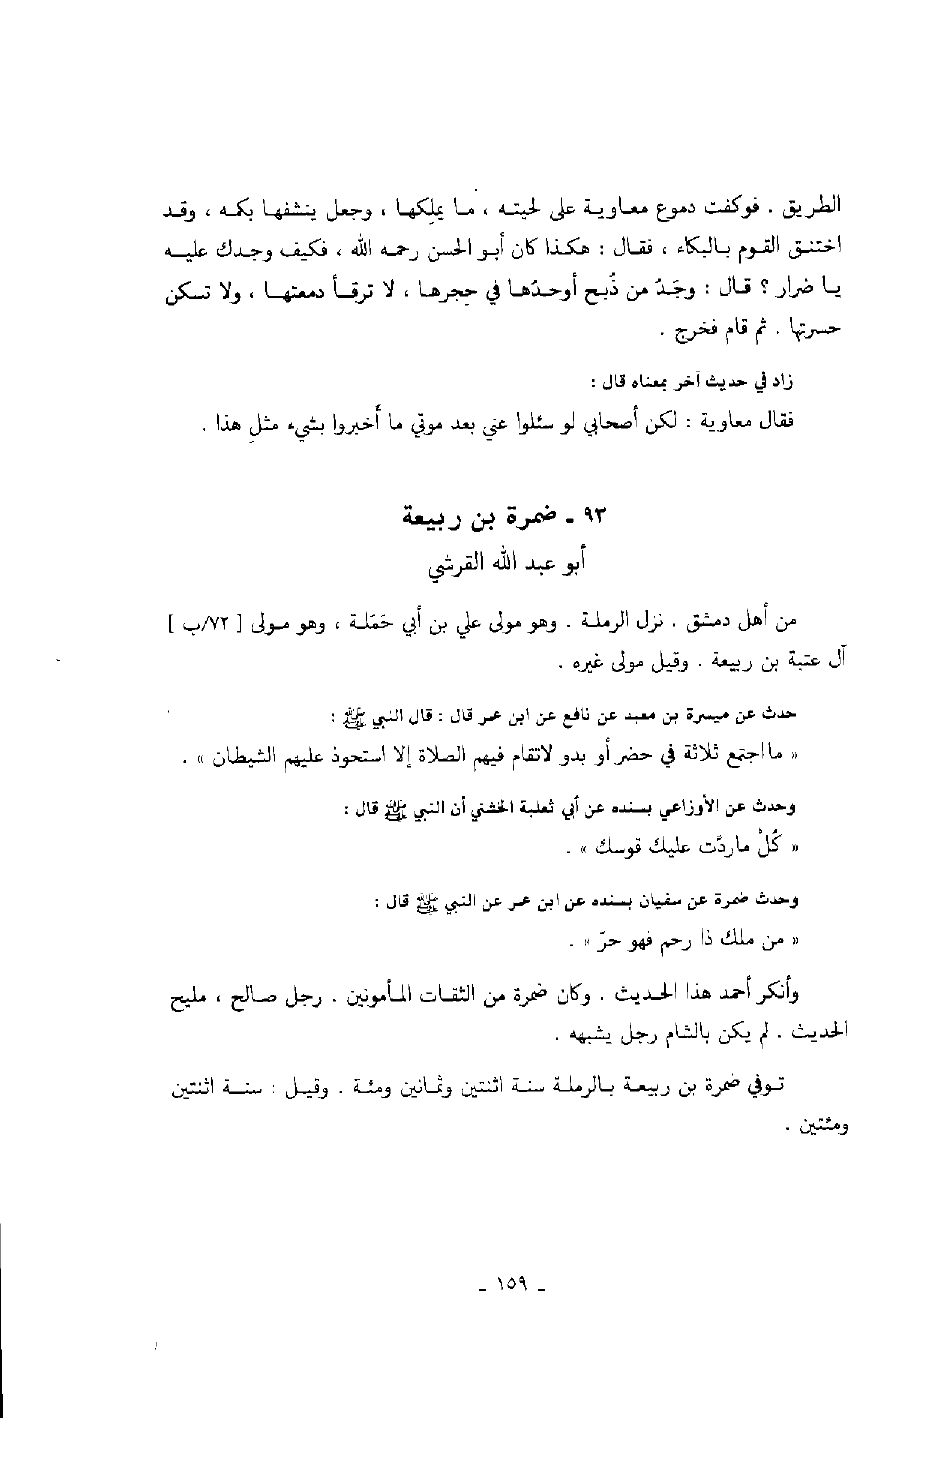 الطريق . فوكفت دموع معاوية على لحيته ، ما يملكها ، وجعل ينشفها بكه ، وقد
اختنق القوم بالبكاء ، فقال : هكذا كان أبو الحسن رحمه الله ، فكيف وجدك عليه
يا ضرار ؟ قال : وجَدُ من ذُبح أوحدُها في حجرها ، لا ترقأ دمعتها ، ولا تسكن
حسرتها . ثم قام فخرج .
زاد في حديث آخر بمعناه قال :
فقال معاوية : لكن أصحابي لو سئلوا عني بعد موتي ما أخبروا بشيء مثل هذا .
٩٣ ـ ضمرة بن ربيعة
أبو عبد الله القرشي
من أهل دمشق . نزل الرملة . وهو مولى علي بن أبي حَمَلة ، وهو مولى [ ٧٢/ب ]
آل عتبة بن ربيعة . وقيل مولى غيره .
حدث عن ميسرة بن معبد عن نافع عن ابن عمر قال : قال النبي ﷺ :
« ما اجتمع ثلاثة في حضر أو بدو لا تقام فيهم الصلاة إلا استحوذ عليهم الشيطان » .
وحدث عن الأوزاعي بسنده عن أبي ثعلبة الخشني أن النبي ﷺ قال :
« كُلْ ما ردَّت عليك قوسك » .
وحدث ضمرة عن سفيان بسنده عن ابن عمر عن النبي ﷺ قال :
« من ملك ذا رحم فهو حرّ » .
وأنكر أحمد هذا الحديث . وكان ضمرة من الثقات المأمونين . رجل صالح ، مليح
الحديث . لم يكن بالشام رجل يشبهه .
توفي ضمرة بن ربيعة بالرملة سنة اثنتين وثمانين ومئة . وقيل : سنة اثنتين
ومئتين .
ـ ١٥٩ ـ